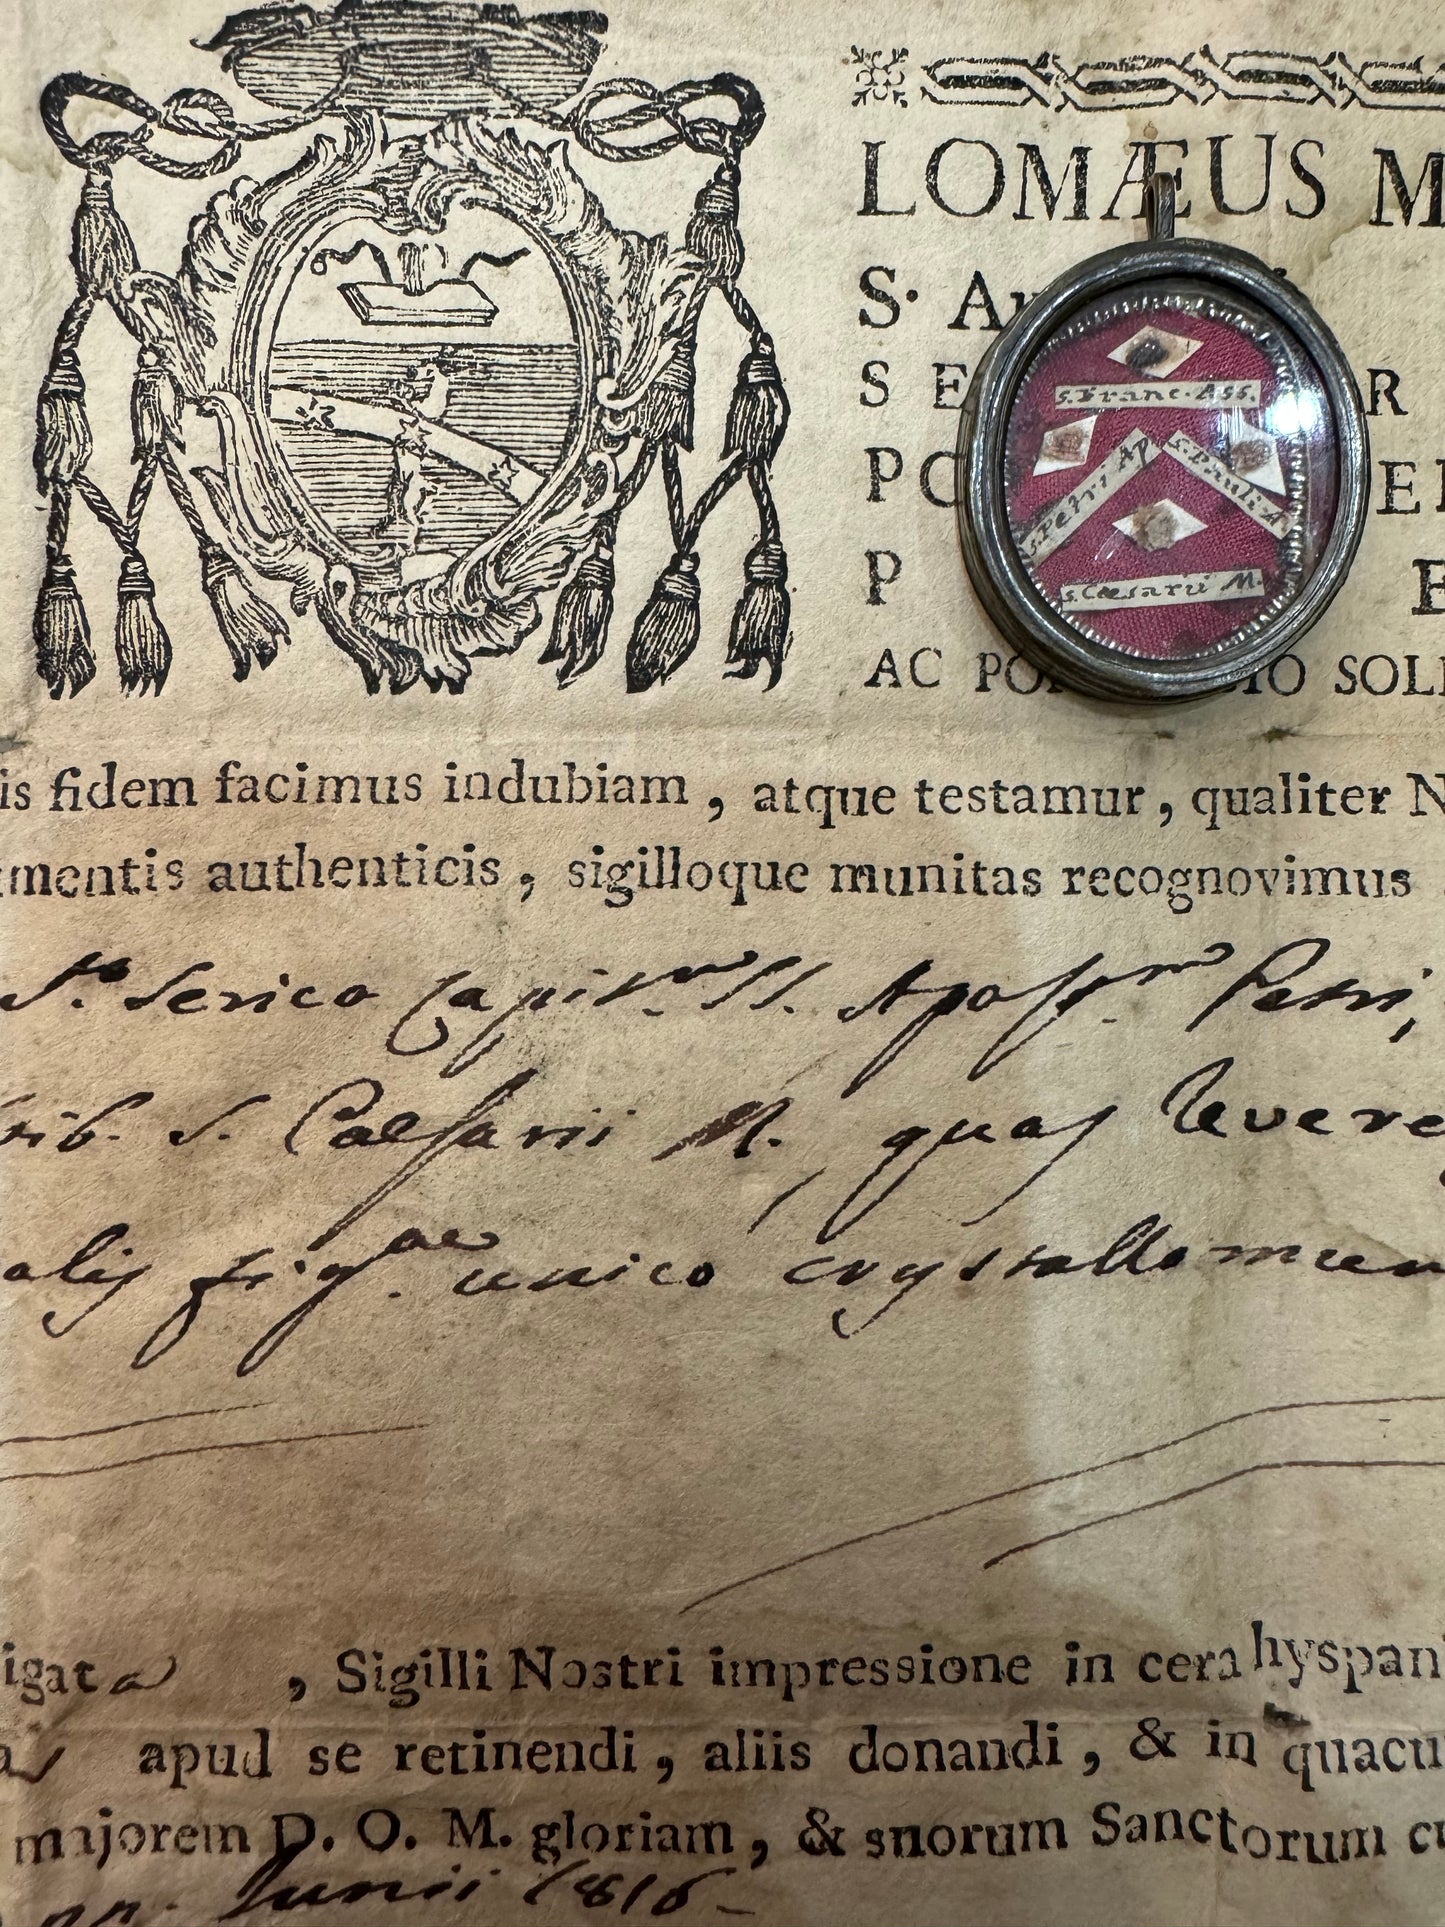 LOMÆUS M
S. A
S E R
P E
P E
AC PO IO SOLI
S. Franc. Ass.
S. Petri Ap
S. Pauli A
S. Cæsarii M.
is fidem facimus indubiam, atque testamur, qualiter N
mentis authenticis, sigilloque munitas recognovimus
Sto. Serico Capit. SS. Apost.rm Petri,
rib. S. Caesarii M., quas revere
alis fig.ae unico crystallo mun
igata, Sigilli Nostri impressione in cera hyspan
apud se retinendi, aliis donandi, & in quacu
majorem D. O. M. gloriam, & suorum Sanctorum cu
Junii 1816